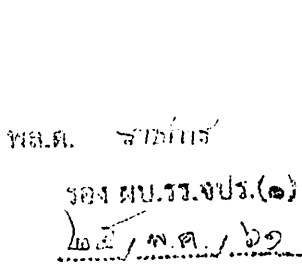 พล.ต.
รอง ผบ.รร.จปร.(๑)
๒๕ / พ.ค. / ๖๑